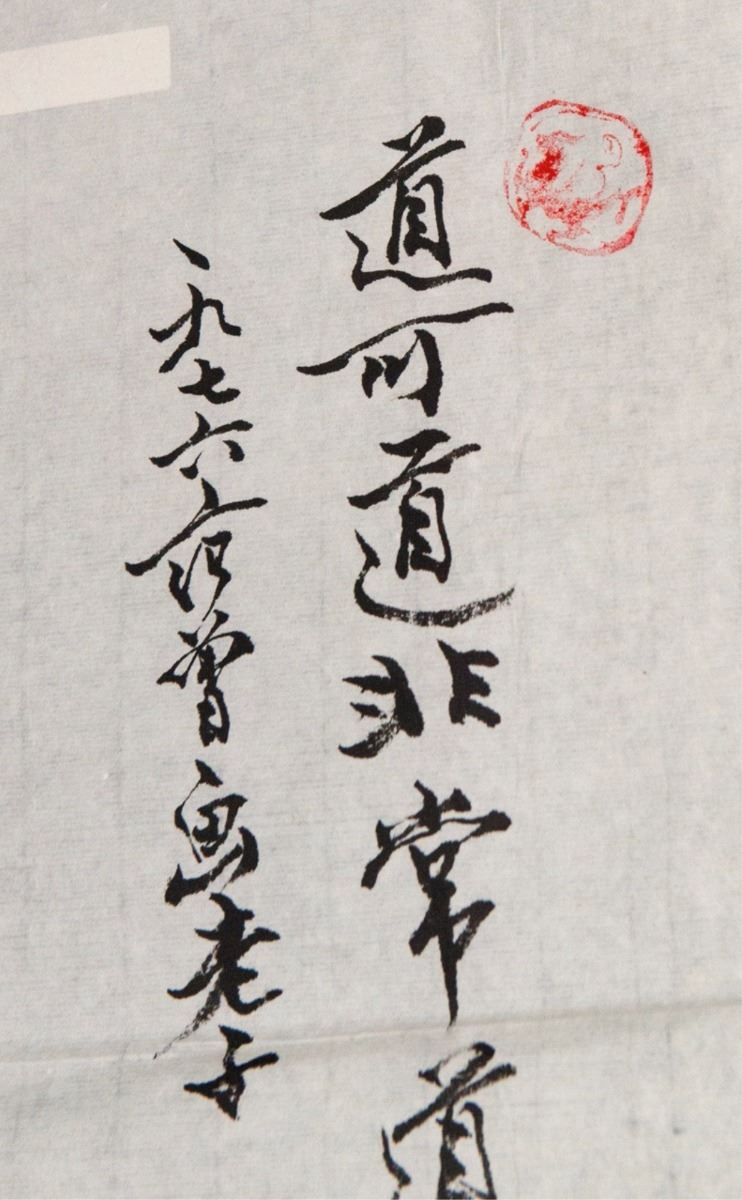 道可道非常道
一九七六范曾画老子